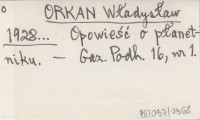 o
ORKAN Władysław
1928... Opowieść o płanet-
niku. — Gaz. Podh. 16, nr 1.
BI/037/0368